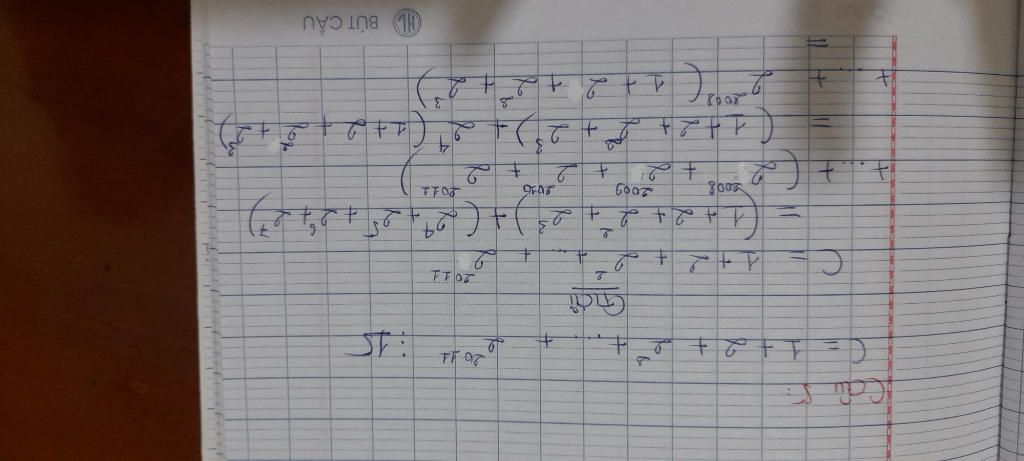 Câu 5:
C = 1 + 2 + 2² + ... + 2²⁰¹¹ ⋮ 15
Giải
C = 1 + 2 + 2² + ... + 2²⁰¹¹
= (1 + 2 + 2² + 2³) + (2⁴ + 2⁵ + 2⁶ + 2⁷)
+ ... + (2²⁰⁰⁸ + 2²⁰⁰⁹ + 2²⁰¹⁰ + 2²⁰¹¹)
= (1 + 2 + 2² + 2³) + 2⁴ (1 + 2 + 2² + 2³)
+ ... + 2²⁰⁰⁸ (1 + 2 + 2² + 2³)
=
HL BÚT CẦU